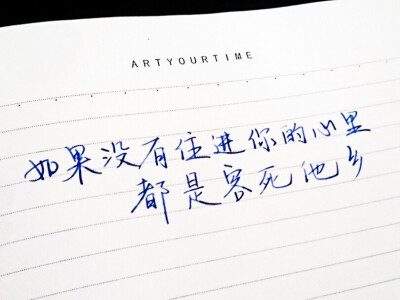 ARTYOURTIME
如果没有住进你的心里
都是客死他乡